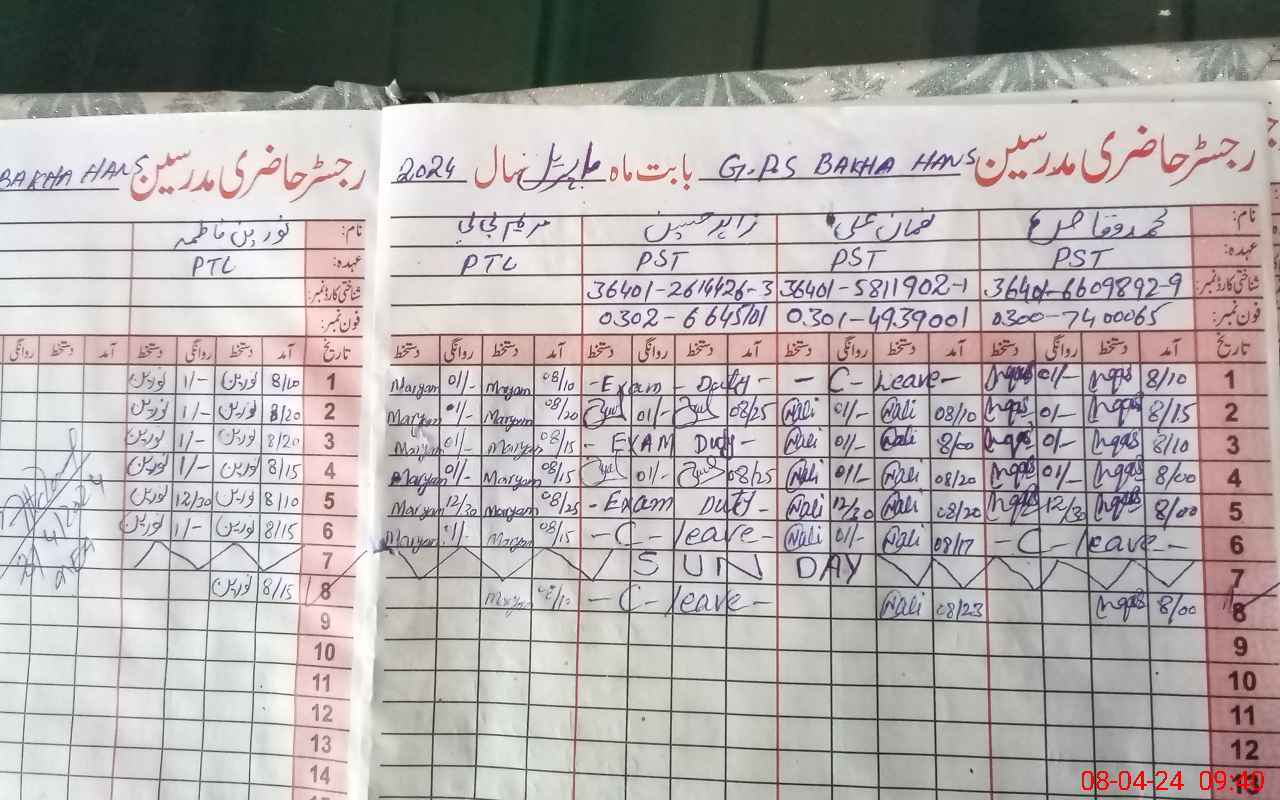 رجسٹر حاضری مدرسین G.P.S BAKHA HANS بابت ماہ اپریل سال 2024
نام: محمد وقاص نعمان علی زاہد حسین مریم بی بی
عہدہ: PST PST PST PTL
شناختی کارڈ نمبر: 36401-6609892-9 36401-5811902-1 36401-2614426-3
فون نمبر: 0300-7400065 0301-4939001 0302-6645101
تاریخ آمد دستخط روانگی دستخط آمد دستخط روانگی دستخط آمد دستخط روانگی دستخط آمد دستخط روانگی دستخط
1 8/10 01/- - C - Leave - - Exam - Duty - 08/10 Maryam 01/- Maryam
2 8/15 0/- 08/10 Wali 01/- Wali 08/25 01/- 08/20 Maryam 01/- Maryam
3 8/10 0/- 8/00 Wali 01/- Wali - EXAM Duty - 08/15 Maryam 01/- Maryam
4 8/00 01/- 08/20 Wali 01/- Wali 08/25 01/- 08/15 Maryam 01/- Maryam
5 8/00 12/30 08/20 Wali 12/30 Wali - Exam Duty - 08/25 Maryam 12/30 Maryam
6 - C - leave - 08/17 Wali 01/- Wali - C - leave - 08/15 Maryam 01/- Maryam
7 SUN DAY
8 8/00 08/23 Wali - C - leave - Maryam
9
10
11
12
13
رجسٹر حاضری مدرسین BAKHA HANS
نام: نورین فاطمہ
عہدہ: PTL
شناختی کارڈ نمبر:
فون نمبر:
تاریخ آمد دستخط روانگی دستخط آمد دستخط روانگی
1 8/10 نورین 1/- نورین
2 8/20 نورین 1/- نورین
3 8/20 نورین 1/- نورین
4 8/15 نورین 1/- نورین
5 8/10 نورین 12/30 نورین
6 8/15 نورین 1/- نورین
7
8 8/15 نورین
9
10
11
12
13
14
08-04-24 09:40